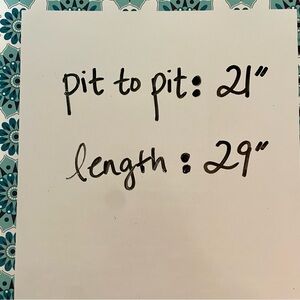 pit to pit: 21"
length : 29"